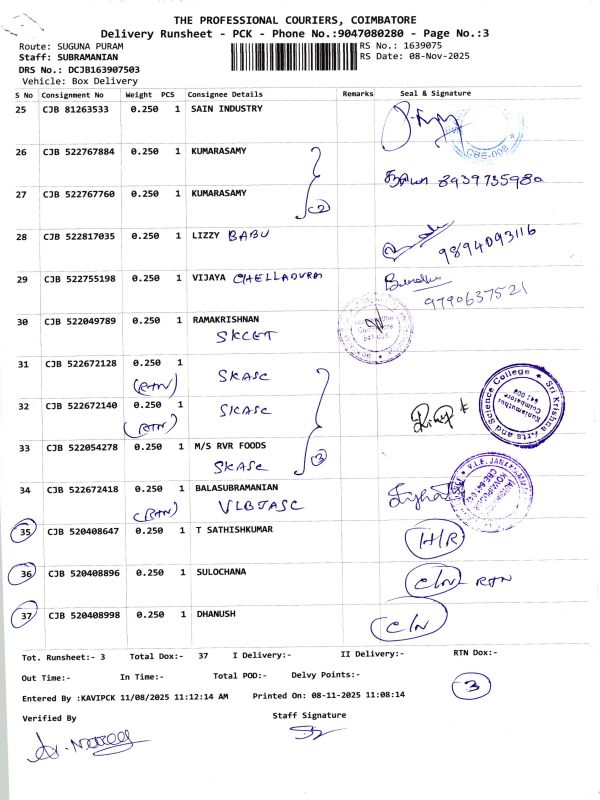 THE PROFESSIONAL COURIERS, COIMBATORE
Delivery Runsheet - PCK - Phone No.:9047080280 - Page No.:3
Route: SUGUNA PURAM RS No.: 1639075
Staff: SUBRAMANIAN RS Date: 08-Nov-2025
DRS No.: DCJB163907503
Vehicle: Box Delivery
S No Consignment No Weight PCS Consignee Details Remarks Seal & Signature
25 CJB 81263533 0.250 1 SAIN INDUSTRY
CBE-008
26 CJB 522767884 0.250 1 KUMARASAMY
8939735980
27 CJB 522767760 0.250 1 KUMARASAMY
2
28 CJB 522817035 0.250 1 LIZZY BABU
9894093116
29 CJB 522755198 0.250 1 VIJAYA CHELLADURAI
9790637521
30 CJB 522049789 0.250 1 RAMAKRISHNAN
SKCET
31 CJB 522672128 0.250 1
(RTN) SKASC
32 CJB 522672140 0.250 1 SKASC
(RTN)
Sri Krishna Arts and Science College
Kuniamuthur
Coimbatore
641 008
33 CJB 522054278 0.250 1 M/S RVR FOODS
SKASC 3
34 CJB 522672418 0.250 1 BALASUBRAMANIAN
(RTN) VLBJASC
35 CJB 520408647 0.250 1 T SATHISHKUMAR H/R
36 CJB 520408896 0.250 1 SULOCHANA C/N RTN
37 CJB 520408998 0.250 1 DHANUSH C/N
Tot. Runsheet:- 3 Total Dox:- 37 I Delivery:- II Delivery:- RTN Dox:-
Out Time:- In Time:- Total POD:- Delvy Points:- 3
Entered By :KAVIPCK 11/08/2025 11:12:14 AM Printed On: 08-11-2025 11:08:14
Verified By Staff Signature